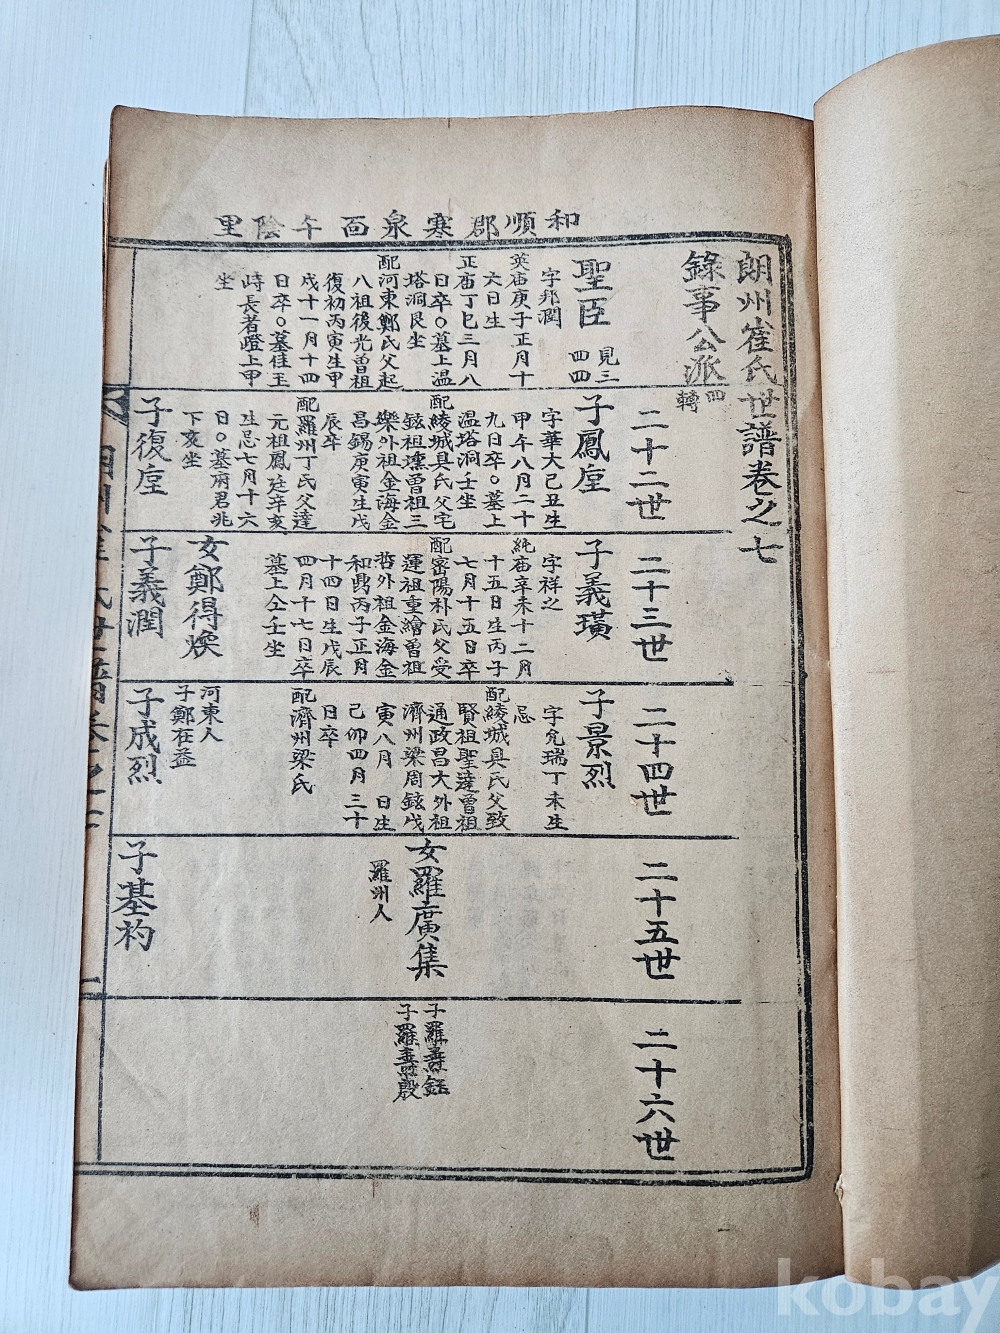 和順郡寒泉面午陰里
朗州崔氏世譜卷之七
錄事公派
四
轉
聖臣
見三
四四
字邦潤
英庙庚子正月十
六日生
正庙丁巳三月八
日卒○墓上温
塔洞艮坐
配河東鄭氏父起
八祖後光曾祖
復初丙寅生甲
戌十一月十四
日卒○墓佳王
峙長者嶝上甲
坐
二十二世
子鳳垕
字華大己丑生
甲午八月二十
九日卒○墓上
温塔洞壬坐
配綾城具氏父宅
鉉祖壎曾祖三
樂外祖金海金
昌錫庚寅生戊
辰卒
配羅州丁氏父達
元祖鳳廷辛亥
生忌七月十六
日○墓府君兆
下亥坐
子復垕
二十三世
子義璜
字祥之
純庙辛未十二月
十五日生丙子
七月十五日卒
配密陽朴氏父受
運祖重繪曾祖
哲外祖金海金
和勗丙子正月
十四日生戊辰
四月十七日卒
墓上仝壬坐
女鄭得煥
河東人
子鄭在益
子義潤
二十四世
子景烈
字允瑞丁未生
忌
配綾城具氏父致
賢祖聖達曾祖
通政昌大外祖
濟州梁周鉉戊
寅八月 日生
己卯四月三十
日卒
配濟州梁氏
子成烈
二十五世
女羅廣集
羅州人
子基杓
二十六世
子羅壽鈺
子羅壽殷
kobay